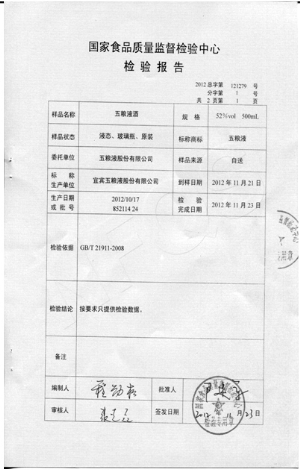 国家食品质量监督检验中心
检验报告
2012 总字第 121279 号
分字第 1 号
共 2 页第 1 页
样品名称 五粮液酒 规格 52%vol 500mL
样品状态 液态、玻璃瓶、原装 标称商标 五粮液
委托单位 五粮液股份有限公司 样品来源 自送
标称
生产单位 宜宾五粮液股份有限公司 到样日期 2012 年 11 月 21 日
生产日期
或批号 2012/10/17
852114 24 检验
完成日期 2012 年 11 月 23 日
检验依据 GB/T 21911-2008
检验结论 按要求只提供检验数据。
备注
编制人 批准人
审核人 签发日期 2012 年 11 月 23 日